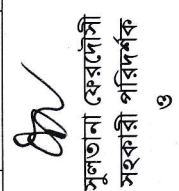 সুলতানা ফেরদৌসী
সহকারী পরিদর্শক
ও